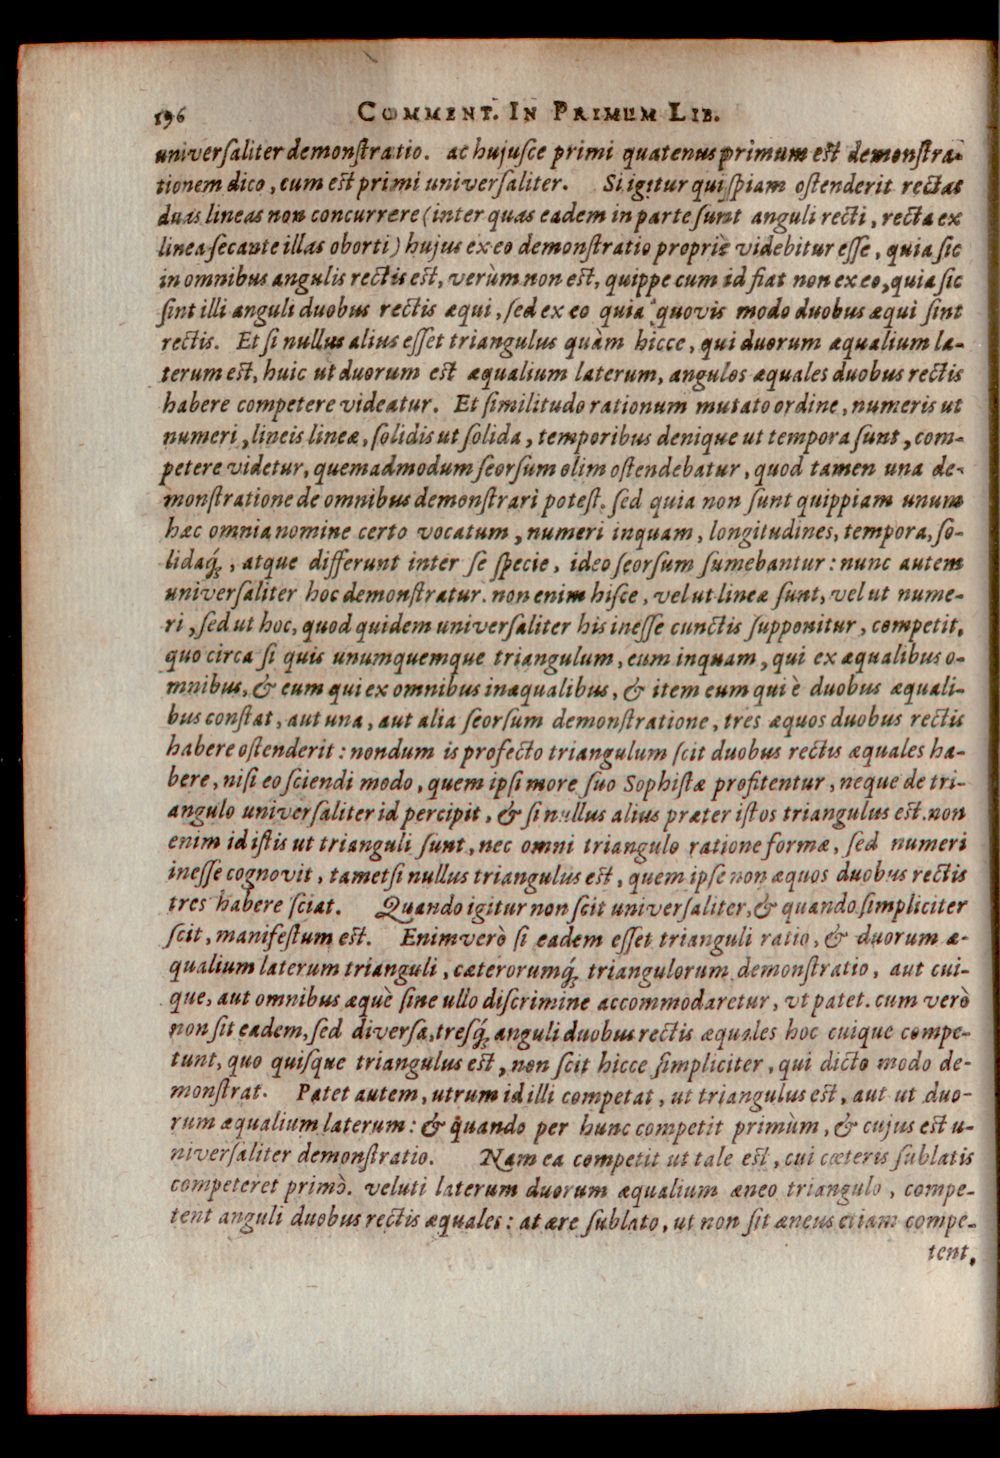 196 COMMENT. IN PRIMUM LIB.
universaliter demonstratio. ac hujusce primi quatenus primum est demonstra-
tionem dico, cum est primi universaliter. Si igitur quispiam ostenderit rectas
duas lineas non concurrere (inter quas eadem in parte sunt anguli recti, recta ex
linea secante illas oborti) hujus ex eo demonstratio propriè videbitur esse, quia sic
in omnibus angulis rectis est, verùm non est, quippe cum id fiat non ex eo, quia sic
sint illi anguli duobus rectis æqui, sed ex eo quia quovis modo duobus æqui sint
rectis. Et si nullus alius esset triangulus quàm hicce, qui duorum æqualium la-
terum est, huic ut duorum est æqualium laterum, angulos æquales duobus rectis
habere competere videatur. Et similitudo rationum mutato ordine, numeris ut
numeri, lineis lineæ, solidis ut solida, temporibus denique ut tempora sunt, com-
petere videtur, quemadmodum seorsum olim ostendebatur, quod tamen una de-
monstratione de omnibus demonstrari potest. sed quia non sunt quippiam unum
hæc omnia nomine certo vocatum, numeri inquam, longitudines, tempora, so-
lidaq́;, atque differunt inter se specie, ideo seorsum sumebantur: nunc autem
universaliter hoc demonstratur. non enim hisce, vel ut lineæ sunt, vel ut nume-
ri, sed ut hoc, quod quidem universaliter his inesse cunctis supponitur, competit.
quo circa si quis unumquemque triangulum, eum inquam, qui ex æqualibus o-
mnibus, & eum qui ex omnibus inæqualibus, & item eum qui è duobus æquali-
bus constat, aut una, aut alia seorsum demonstratione, tres æquos duobus rectis
habere ostenderit: nondum is profecto triangulum scit duobus rectis æquales ha-
bere, nisi eo sciendi modo, quem ipsi more suo Sophistæ profitentur, neque de tri-
angulo universaliter id percipit, & si nullus alius præter istos triangulus est. non
enim id istis ut trianguli sunt, nec omni triangulo ratione formæ, sed numeri
inesse cognovit, tametsi nullus triangulus est, quem ipse non æquos duobus rectis
tres habere sciat. Quando igitur non scit universaliter, & quando simpliciter
scit, manifestum est. Enimverò si eadem esset trianguli ratio, & duorum æ-
qualium laterum trianguli, cæterorumq́; triangulorum demonstratio, aut cui-
que, aut omnibus æquè sine ullo discrimine accommodaretur, ut patet. cum verò
non sit eadem, sed diversa, tresq́; anguli duobus rectis æquales hoc cuique compe-
tunt, quo quisque triangulus est, non scit hicce simpliciter, qui dicto modo de-
monstrat. Patet autem, utrum id illi competat, ut triangulus est, aut ut duo-
rum æqualium laterum: & quando per hunc competit primùm, & cujus est u-
niversaliter demonstratio. Nam ea competit ut tale est, cui cæteris sublatis
competeret primò. veluti laterum duorum æqualium æneo triangulo, compe-
tent anguli duobus rectis æquales: at ære sublato, ut non sit æneus etiam compe-
tent,